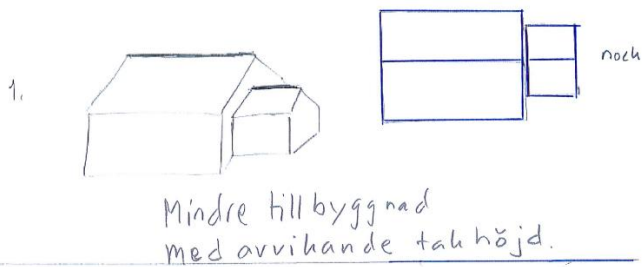 1.
nock
Mindre tillbyggnad
med avvikande takhöjd.